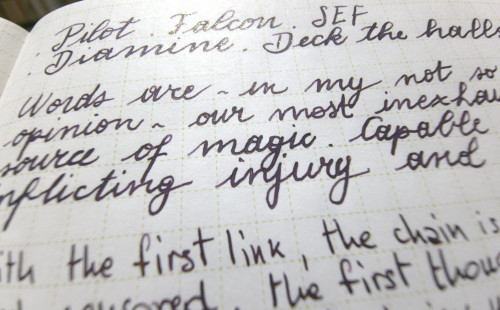 Pilot. Falcon. SEF
. Diamine. Deck the halls
Words are ~ in my not so
opinion ~ our most inexhau
source of magic. Capable
nflicting injury and
ith the first link, the chain is
censored, the first thou